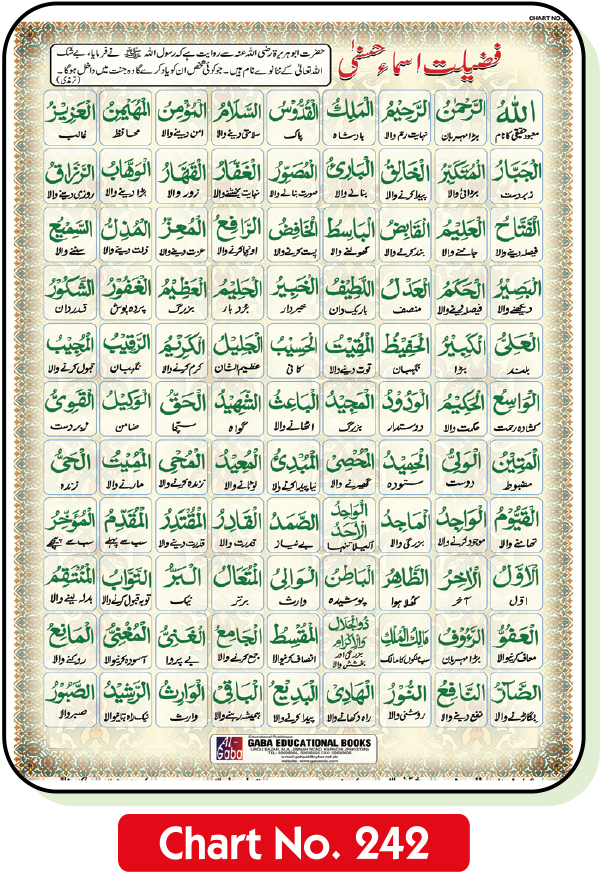 CHART NO.
فضیلت اسماءِ حسنیٰ
حضرت ابوہریرۃ رضی اللہ عنہ سے روایت ہے کہ رسول اللہ ﷺ نے فرمایا، بے شک
اللہ تعالیٰ کے ننانوے نام ہیں۔ جو کوئی شخص ان کو یاد کرے گا وہ جنت میں داخل ہوگا۔ (ترمذی)
اَللهُ الرَّحْمٰنُ الرَّحِيْمُ الْمَلِكُ الْقُدُّوْسُ السَّلَامُ الْمُؤْمِنُ الْمُهَيْمِنُ الْعَزِيْزُ
معبود حقیقی کا نام بڑا مہربان نہایت رحم والا بادشاہ پاک سلامتی دینے والا امن دینے والا محافظ غالب
الْجَبَّارُ الْمُتَكَبِّرُ الْخَالِقُ الْبَارِئُ الْمُصَوِّرُ الْغَفَّارُ الْقَهَّارُ الْوَهَّابُ الرَّزَّاقُ
زبردست بڑائی والا پیدا کرنے والا بنانے والا صورت بنانے والا نہایت بخشنے والا زور والا بڑا دینے والا روزی دینے والا
الْفَتَّاحُ الْعَلِيْمُ الْقَابِضُ الْبَاسِطُ الْخَافِضُ الرَّافِعُ الْمُعِزُّ الْمُذِلُّ السَّمِيْعُ
فیصلہ دینے والا جاننے والا بند کرنے والا کھولنے والا پست کرنے والا اونچا کرنے والا عزت دینے والا ذلت دینے والا سننے والا
الْبَصِيْرُ الْحَكَمُ الْعَدْلُ اللَّطِيْفُ الْخَبِيْرُ الْحَلِيْمُ الْعَظِيْمُ الْغَفُوْرُ الشَّكُوْرُ
دیکھنے والا منصف باریک دان خبردار بردبار بزرگ پردہ پوش قدردان
الْعَلِيُّ الْكَبِيْرُ الْحَفِيْظُ الْمُقِيْتُ الْحَسِيْبُ الْجَلِيْلُ الْكَرِيْمُ الرَّقِيْبُ الْمُجِيْبُ
بلند بڑا نگہبان قوت دینے والا کافی عظیم الشان کرم کرنے والا نگہبان قبول کرنے والا
الْوَاسِعُ الْحَكِيْمُ الْوَدُوْدُ الْمَجِيْدُ الْبَاعِثُ الشَّهِيْدُ الْحَقُّ الْوَكِيْلُ الْقَوِيُّ
کشادہ رحمت حکمت والا دوستدار بزرگ اٹھانے والا گواہ سچا ضامن زبردست
الْمَتِيْنُ الْوَلِيُّ الْحَمِيْدُ الْمُحْصِيْ الْمُبْدِئُ الْمُعِيْدُ الْمُحْيِ الْمُمِيْتُ الْحَيُّ
مضبوط دوست ستودہ لوٹانے والا زندہ کرنے والا مارنے والا زندہ
الْقَيُّوْمُ الْوَاجِدُ الْمَاجِدُ الْوَاحِدُ الْاَحَدُ الصَّمَدُ الْقَادِرُ الْمُقْتَدِرُ الْمُقَدِّمُ الْمُؤَخِّرُ
تھامنے والا موجود کرنے والا بزرگی والا اکیلا تنہا بے نیاز قدرت والا قدرت دینے والا سب سے پہلے سب سے پیچھے
الْاَوَّلُ الْاٰخِرُ الظَّاهِرُ الْبَاطِنُ الْوَالِي الْمُتَعَالُ الْبَرُّ التَّوَّابُ الْمُنْتَقِمُ
اوّل آخر کھلا ہوا پوشیدہ وارث برتر نیک توبہ قبول کرنے والا بدلہ لینے والا
الْعَفُوُّ الرَّءُوْفُ مَالِكُ الْمُلْكِ ذُوالْجَلَالِ وَالْاِكْرَامِ الْمُقْسِطُ الْجَامِعُ الْغَنِيُّ الْمُغْنِيْ الْمَانِعُ
معاف کرنیوالا بڑا مہربان سب ملکوں کا مالک بزرگی اور بخشش والا انصاف کرنیوالا جمع کرنے والا بے پروا آسودہ کرنیوالا روکنے والا
الضَّآرُّ النَّافِعُ النُّوْرُ الْهَادِيْ الْبَدِيْعُ الْبَاقِيْ الْوَارِثُ الرَّشِيْدُ الصَّبُوْرُ
بگاڑنے والا نفع دینے والا روشنی والا راہ دکھانے والا پیدا کرنے والا ہمیشہ رہنے والا وارث نیک راہ بتانیوالا صبر والا
Al-Gaba
GABA EDUCATIONAL BOOKS
Chart No. 242